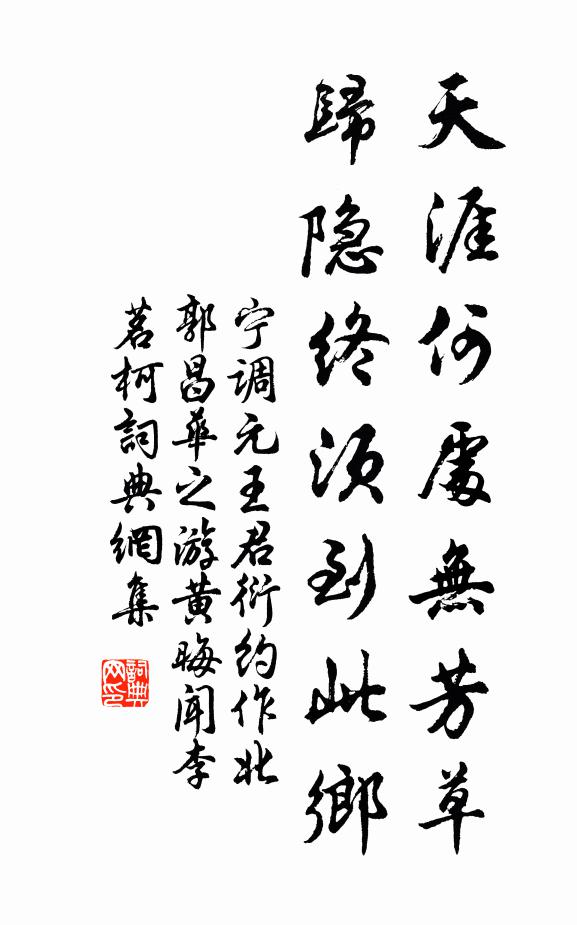 天涯何處無芳草
歸隐終須到此鄉
宁調元王君衍約作北
郭昌華之游黄晦聞李
茗柯詞典網集
詞典网印